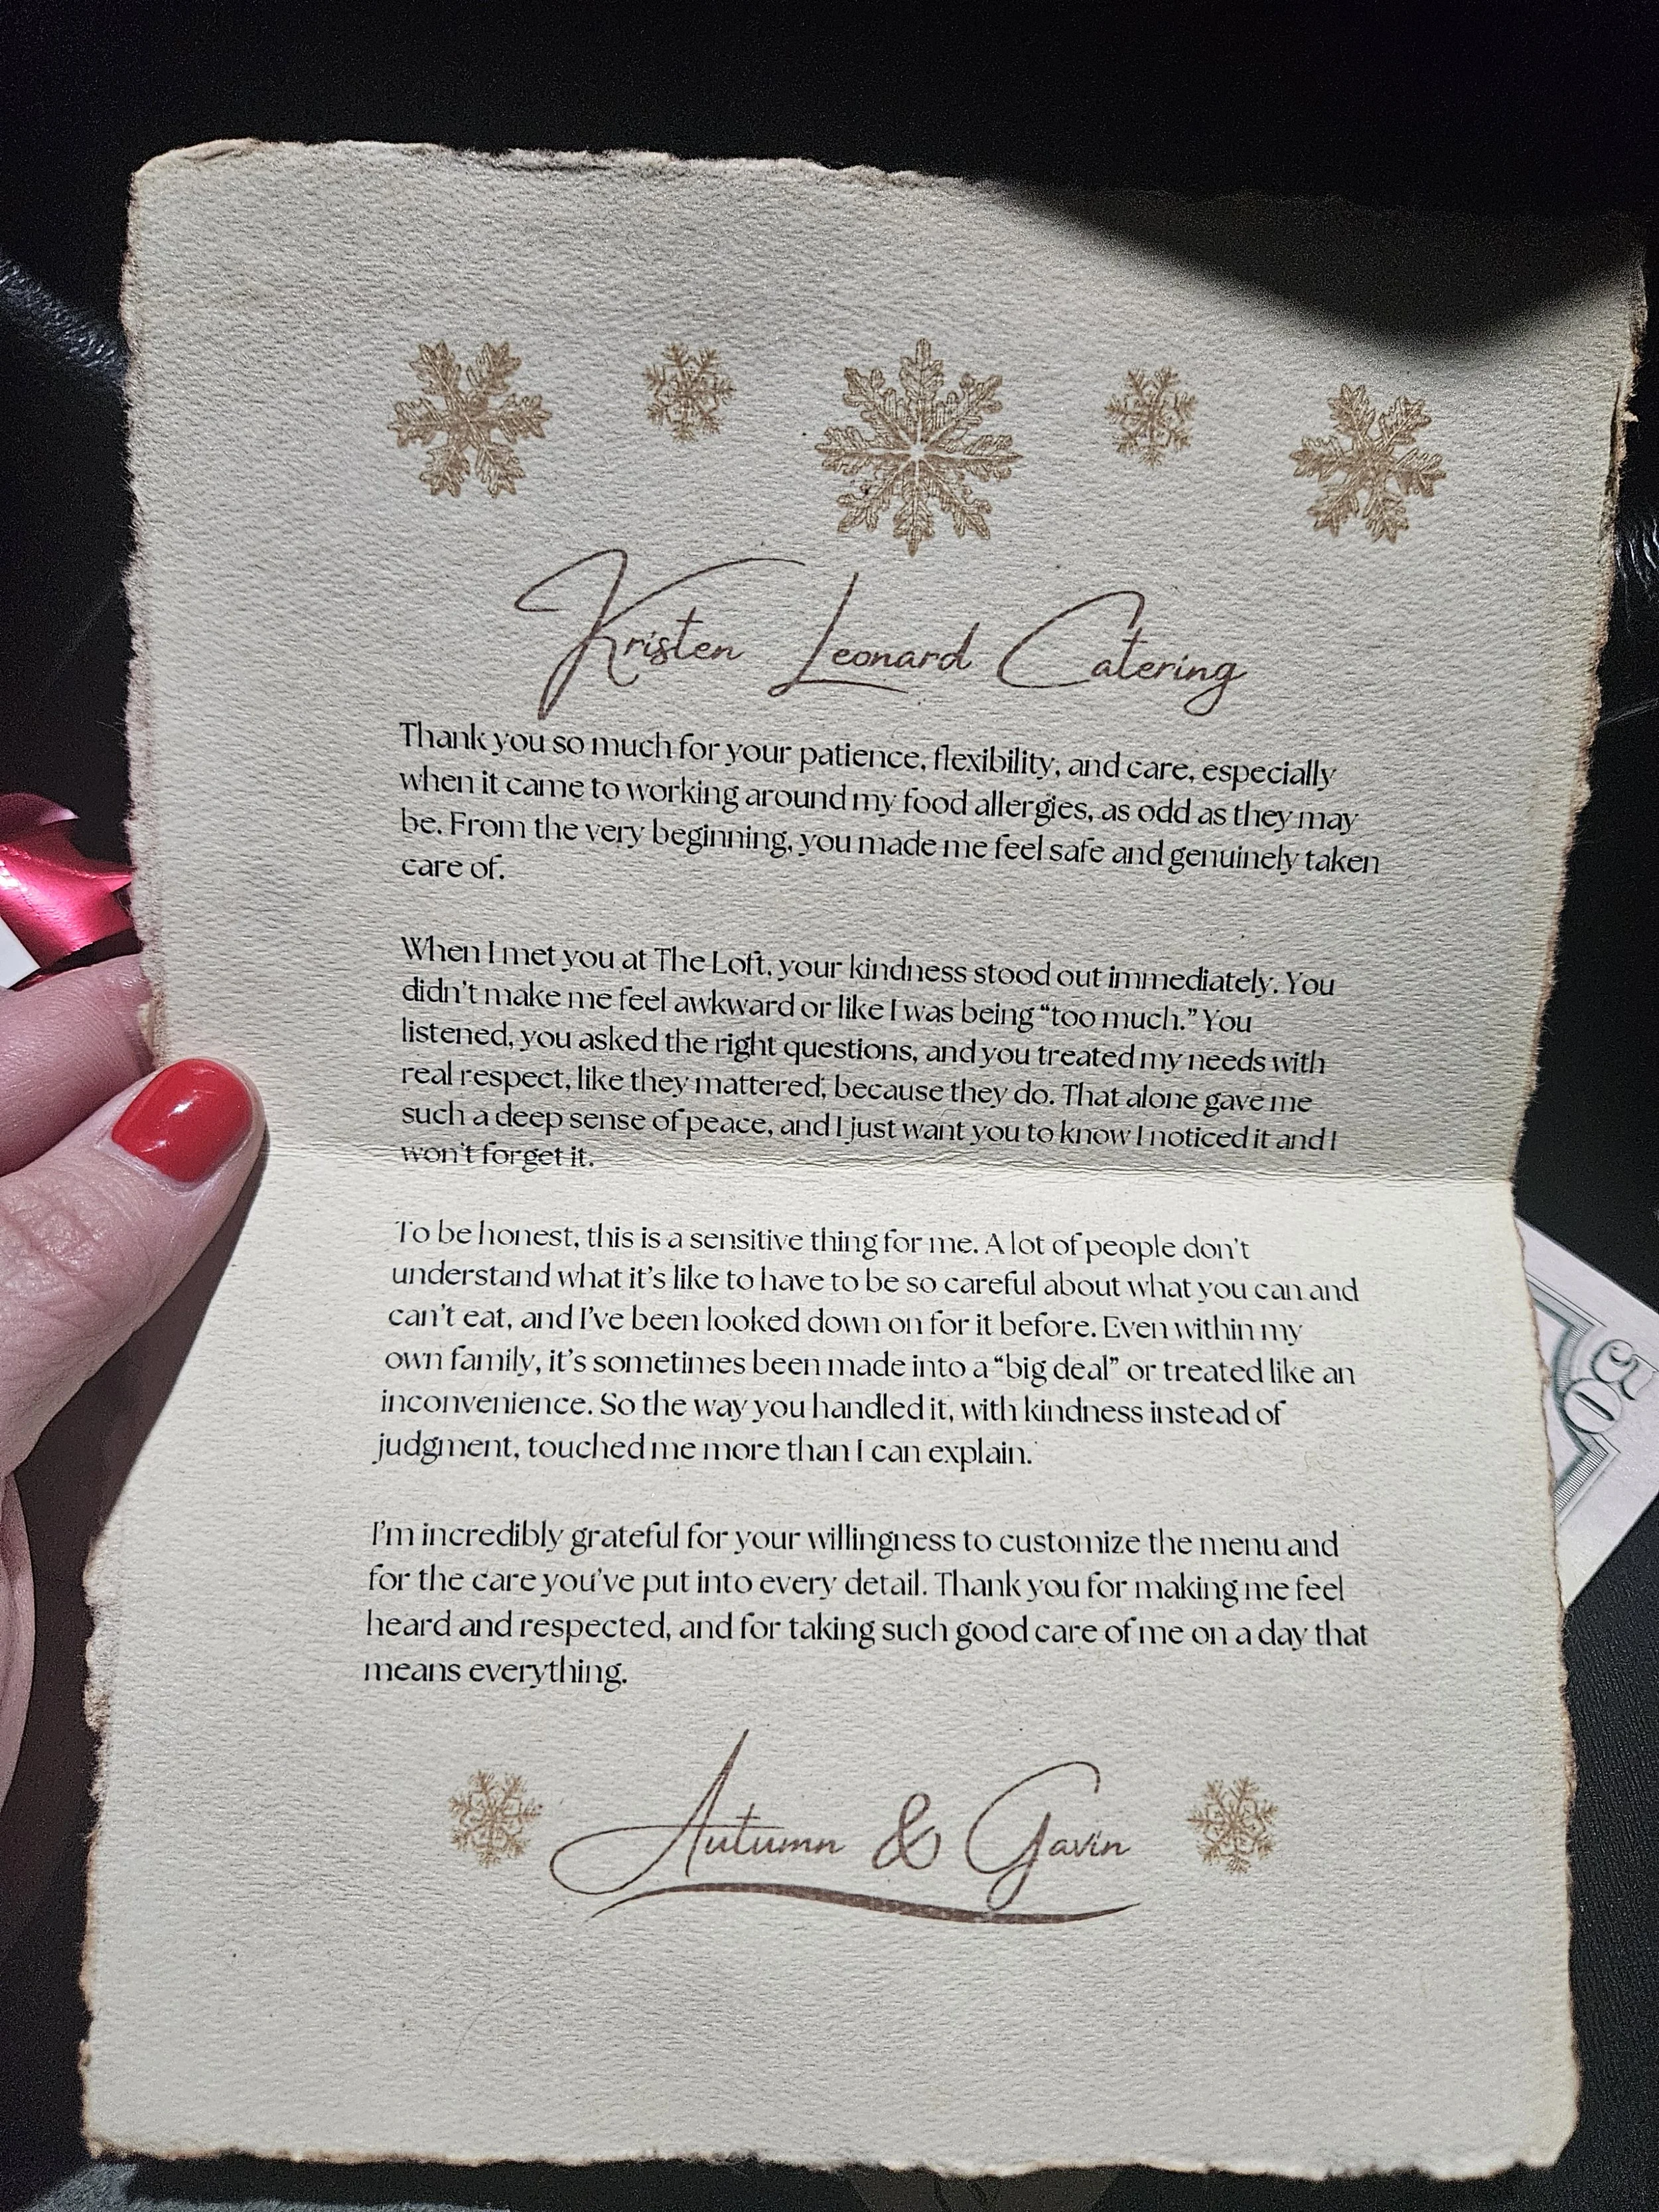 Kristen Leonard Catering
Thank you so much for your patience, flexibility, and care, especially
when it came to working around my food allergies, as odd as they may
be. From the very beginning, you made me feel safe and genuinely taken
care of.
When I met you at The Loft, your kindness stood out immediately. You
didn't make me feel awkward or like I was being “too much.” You
listened, you asked the right questions, and you treated my needs with
real respect, like they mattered; because they do. That alone gave me
such a deep sense of peace, and I just want you to know I noticed it and I
won't forget it.
To be honest, this is a sensitive thing for me. A lot of people don't
understand what it's like to have to be so careful about what you can and
can't eat, and I've been looked down on for it before. Even within my
own family, it's sometimes been made into a “big deal” or treated like an
inconvenience. So the way you handled it, with kindness instead of
judgment, touched me more than I can explain.
I'm incredibly grateful for your willingness to customize the menu and
for the care you've put into every detail. Thank you for making me feel
heard and respected, and for taking such good care of me on a day that
means everything.
Autumn & Gavin
50